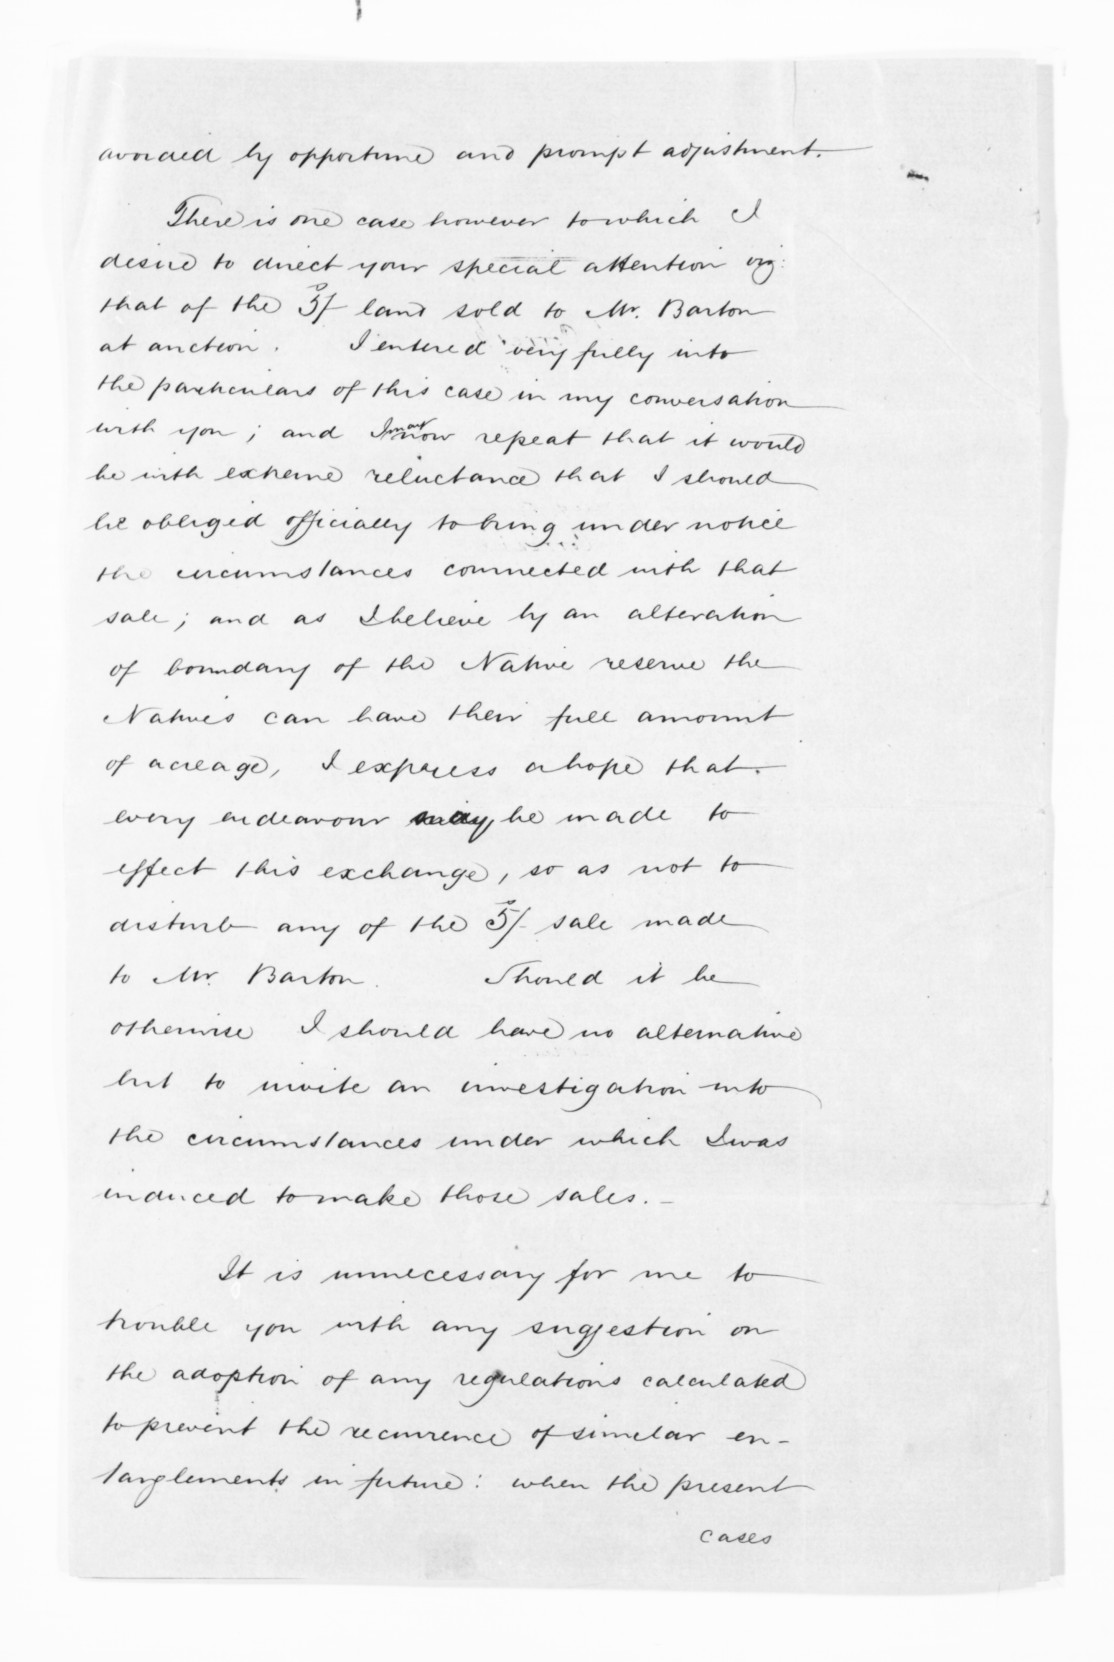 avoided by opportune and prompt adjustment.
There is one case however to which I
desire to direct your special attention viz:
that of the 5/- land sold to Mr. Barton
at auction. I entered very fully into
the particulars of this case in my conversation
with you; and I must now repeat that it would
be with extreme reluctance that I should
be obliged officially to bring under notice
the circumstances connected with that
sale; and as I believe by an alteration
of boundary of the Native reserve the
Natives can have their full amount
of acreage, I express a hope that
every endeavour may be made to
effect this exchange, so as not to
disturb any of the 5/- sale made
to Mr. Barton. Should it be
otherwise I should have no alternative
but to invite an investigation into
the circumstances under which I was
induced to make those sales. -
It is unnecessary for me to
trouble you with any suggestion on
the adoption of any regulations calculated
to prevent the recurrence of similar en-
tanglements in future: when the present
cases